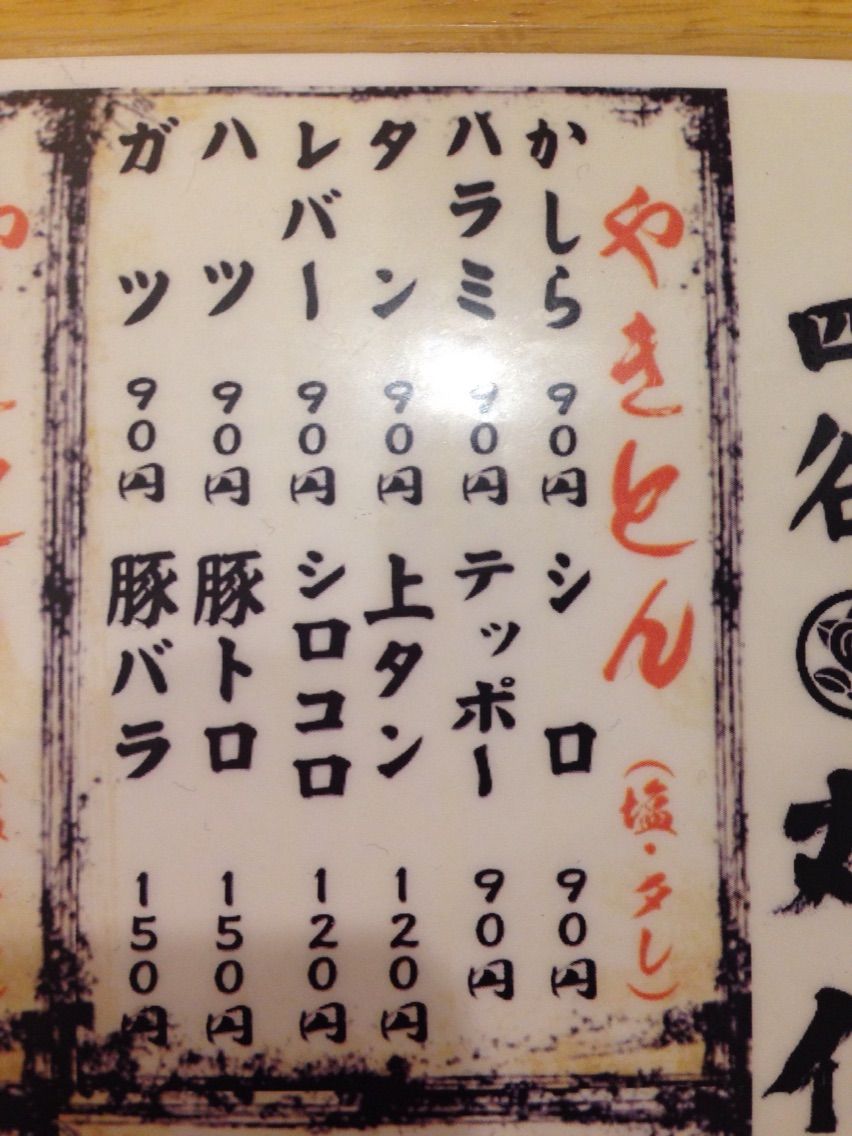 四谷
やきとん(塩・タレ)
かしら 90円
シロ 90円
ハラミ 90円
テッポー 90円
タン 90円
上タン 120円
レバー 90円
シロコロ 120円
ハツ 90円
豚トロ 150円
ガツ 90円
豚バラ 150円
や